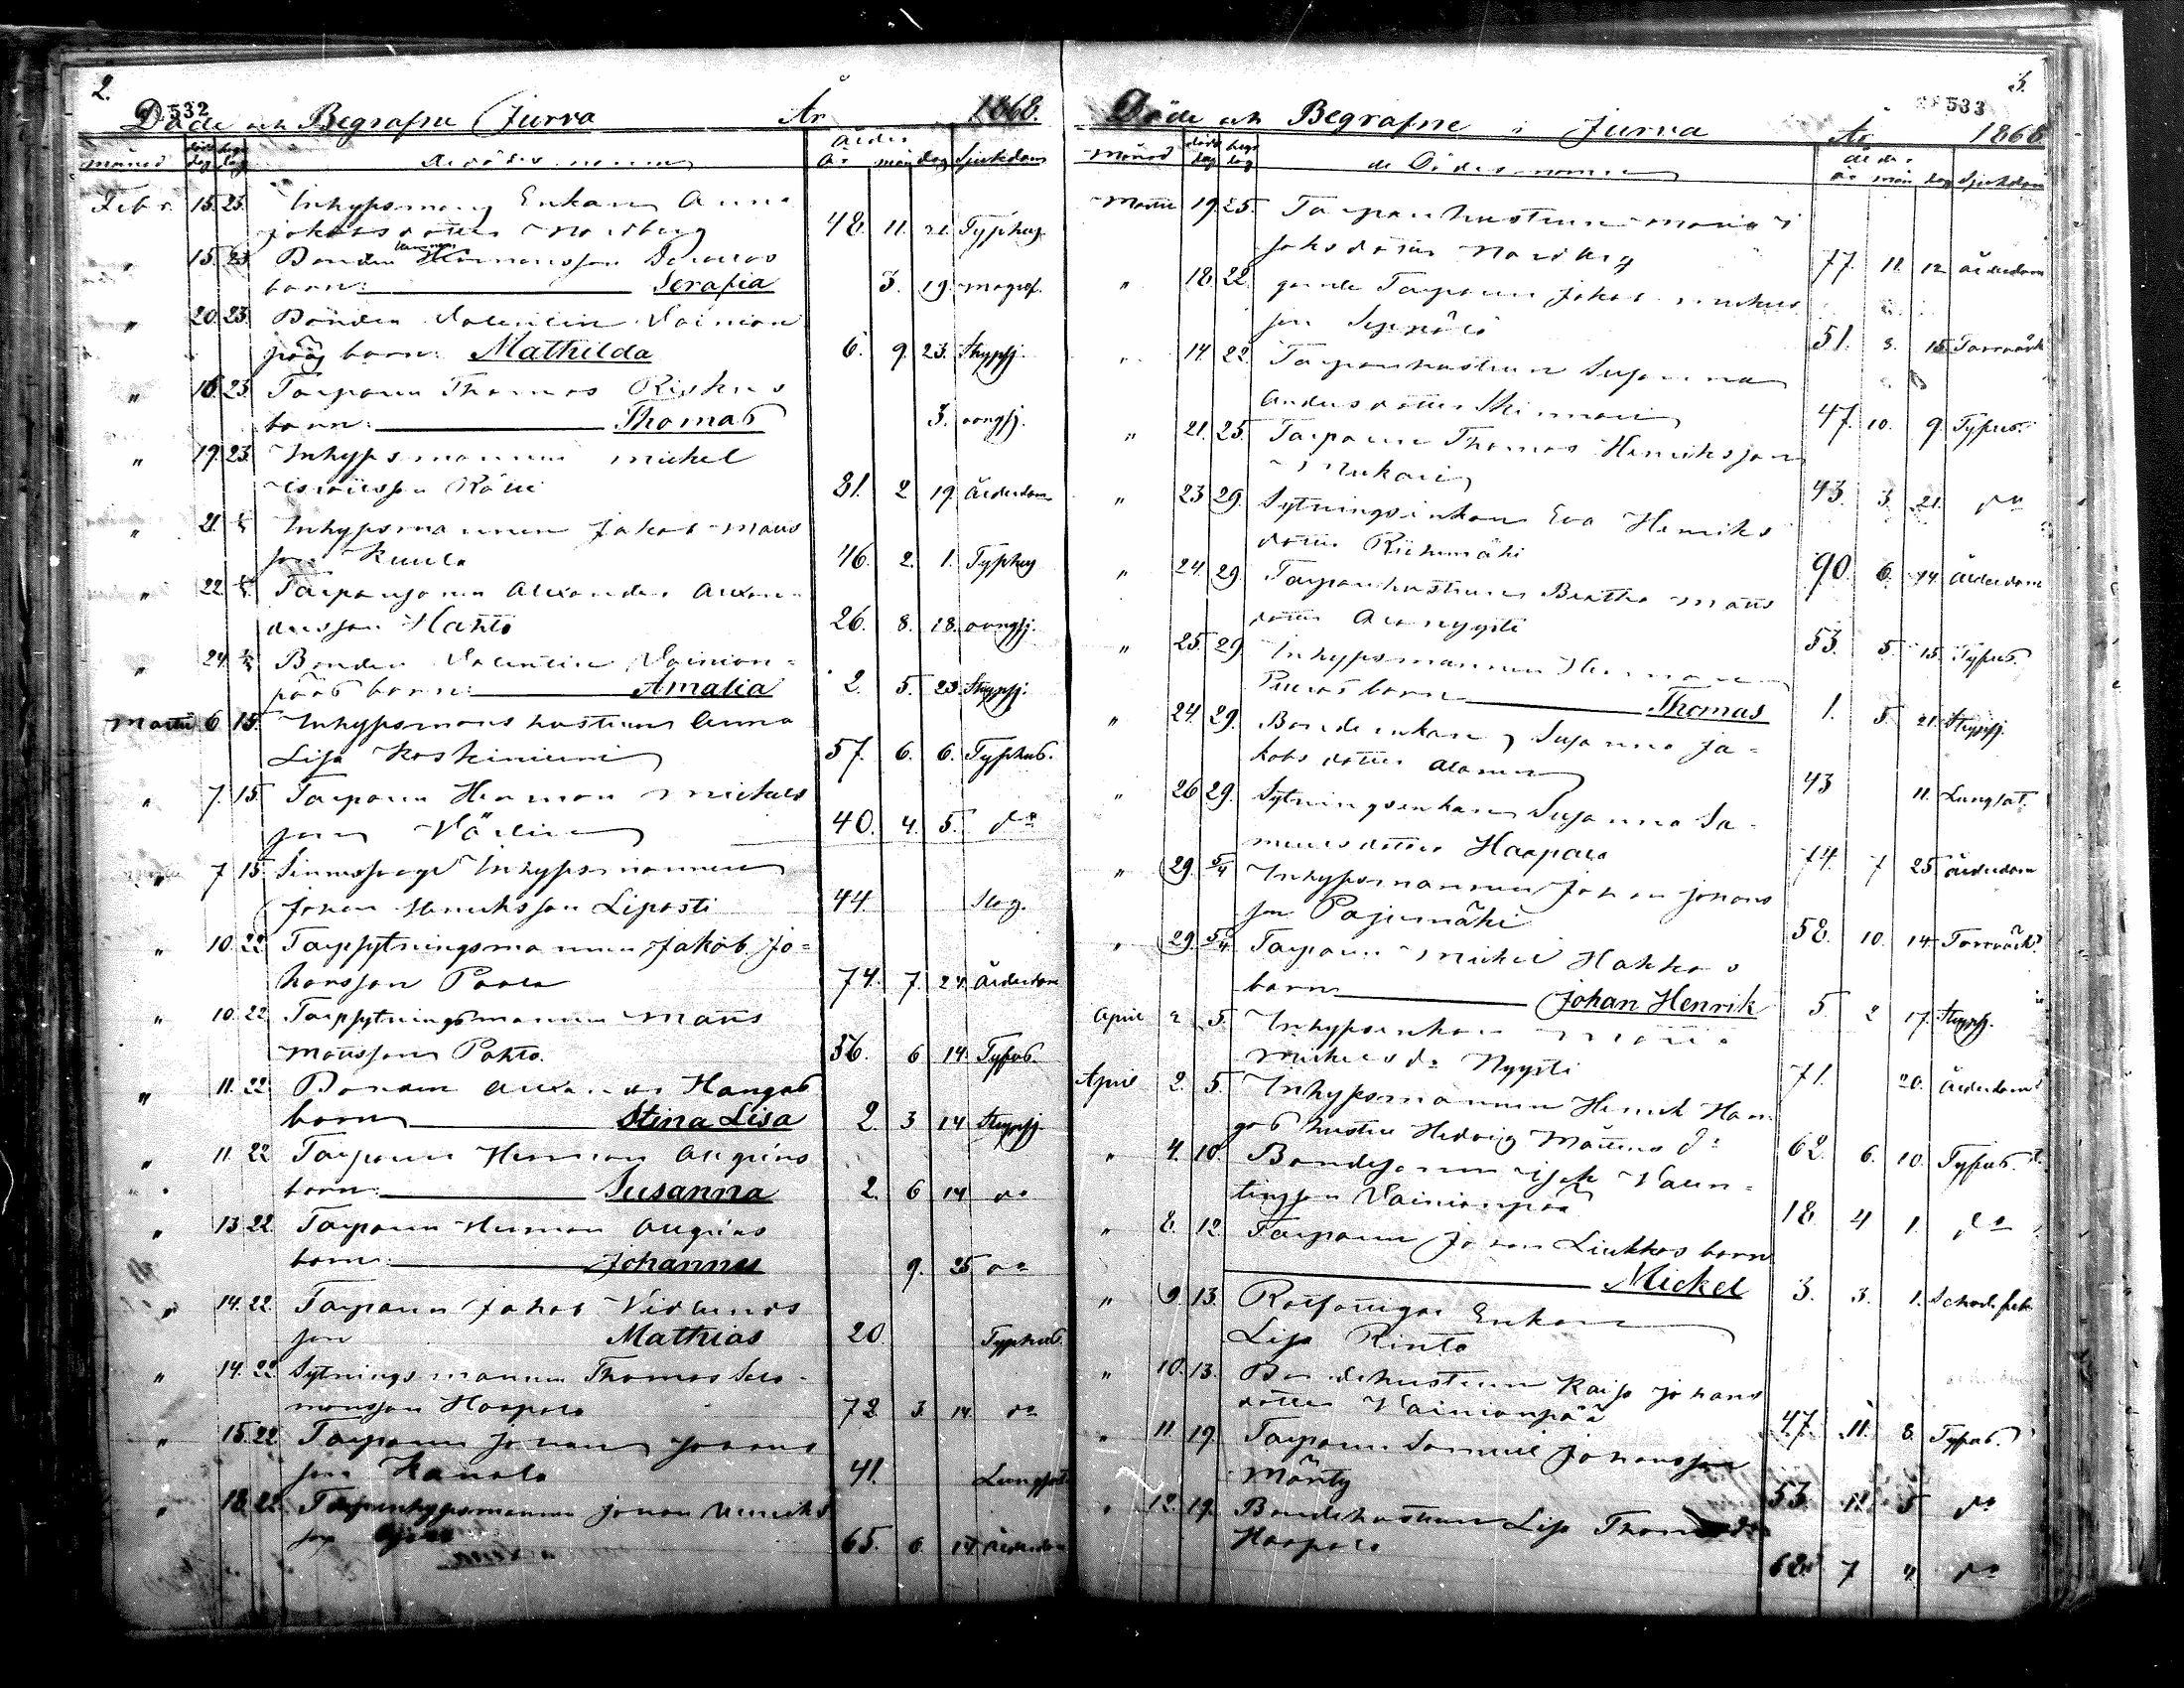 2.
532
Döde och Begrafne Jurva År 1868.
månad död dag begr dag de dödes namn ålder år mån dag Sjukdom
Febr. 15. 23. Inhypsmans Enkan Anna
Jakobsdotter Nordberg 48. 11. 21. Typhus
" 15. 23. Bonden Hermansson
barn: Serafia 3. 19. magref.
" 20. 23. Bonden Valentin Vainion
pääs barn: Mathilda 6. 9. 23. Strypsj.
" 16. 23. Torparen Thomas
barn: Thomas 3. okngsj.
" 19. 23. Inhypsmannen Mickel
Israelsson 81. 2. 19. Ålderdom
" 21. 1/3 Inhypsmannen Jakob Matts
son Kuula 46. 2. 1. Typhus
" 22. 1/3 Torparsonen Alexander Alexan-
dersson Hahto 26. 8. 18. okngsj.
" 24. 1/3 Bonden Valentin Vainion-
pääs barn: Amalia 2. 5. 23. Strypsj.
Martii 6. 15. Inhypsmans hustrun Anna
Lisa Koskiniemi 57. 6. 6. Typhus.
" 7. 15. Torparen Herman Mickels
son 40. 4. 5. do
" 7 15. Sinnessvage Inhypsmannen
Johan Henriksson Liposti 44. Slag.
" 10. 22. Torpsytningsmannen Jakob Jo-
hansson Paala 74. 7. 24. Ålderdom
" 10. 22. Torpsytningsmannen Matts
Mattsson Pohto. 56. 6 14. Typus.
" 11. 22. Bonden Alexander Hangas
barn Stina Lisa 2. 3 14 Strypsj.
" 11. 22 Torparen Herman
barn: Susanna 2. 6 14 do
" 13. 22. Torparen Herman
barn: Johannes 9. 25 do
" 14. 22. Torparen Jakob Vidlunds
son Mathias 20. Typhus.
" 14. 22. Sytningsmannen Thomas Salo-
monsson Haapala 72 3. 14. do
" 15. 22 Torparen Johan Johans
son 41. Lungsot
" 18. 22. Torpinhypsmannen Johan Henriks
son 65. 6. 14 Ålderdom
3.
533
Döde och Begrafne i Jurva År 1868
månad död dag begr dag de Dödes namn ålder år mån dag Sjukdom
Martii 19. 25. Torparhustrun Maria
Jaksdotter Nordberg 77. 11. 12 Ålderdom
" 18. 22. gamle Torparen Jakob Mickels
son Seppälä 51. 3. 15. Torrvärk
" 14 22. Torparhustrun Susanna
Andersdotter 47. 10. 9. Typus.
" 21. 25. Torparen Thomas Henriksson
43. 3. 21. do
" 23 29. Sytningsenkan Eva Henriks
dotter Riihimäki 90. 6. 14. Ålderdom
" 24. 29. Torparhustrun Beatha Matts
dotter Alanyysti 53. 5. 15. Typus.
" 25. 29 Inhypsmannen Herman
barn Thomas 1. 5. 21. Strypsj.
" 24. 29. Bondenkan Susanna Ja-
kobsdotter 43 11. Lungsot.
" 26 29. Sytningsenkan Susanna Sa-
muelsdotter Haapala 74. 7 25 Ålderdom
" 29. 5/4 Inhypsmannen Johan Johans
son Pajumäki 58. 10. 14. Torrvärk
" 29. 5/4. Torparen Mickel Hahkas
barn Johan Henrik 5 2 17. Strypsj.
April 2 5. Inhypsenkan Maria
Mickelsdr Nyysti 71. 20. Ålderdom
April 2. 5. Inhypsmannen Henrik Han
gas hustru Hedvig Mattsdr 62. 6. 10. Typus.
" 4. 10. Bondesonen Isak Valen-
tinsson Vainionpää 18. 4 1. do
" 8. 12. Torparen Johan Liukkos barn
Mickel 3. 3. 1.
" 9. 13. Rotfattiga Enkan
Lisa Rinto
" 10. 13. Bondehustrun Kaisa Johans
dotter Vainionpää 47. 11. 8. Typus.
" 11. 19. Torparen Samuel Johansson
Mänty 53. 11. 5 do
" 12. 19. Bondehustrun Lisa Thomasdr
Haapala 68. 7 4. do